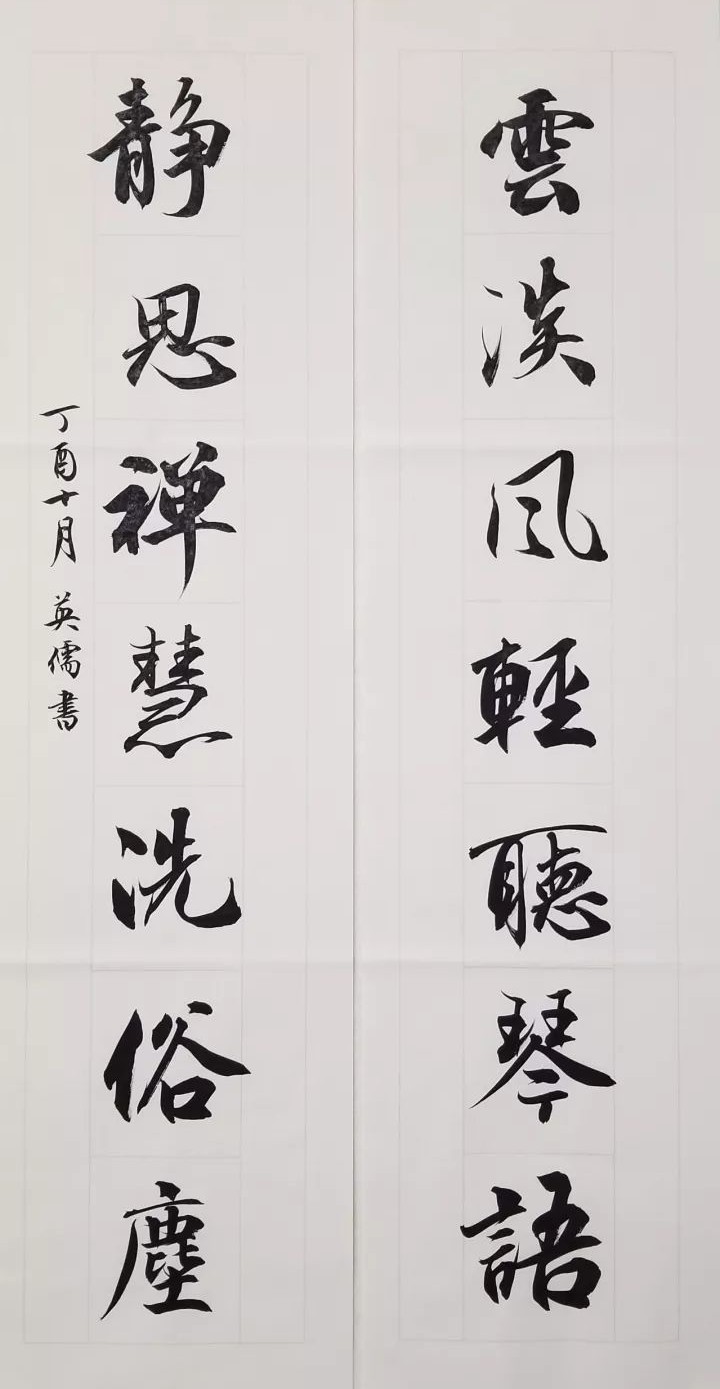 雲淡風輕聽琴語
静思禅慧洗俗塵
丁酉十月 英儒書